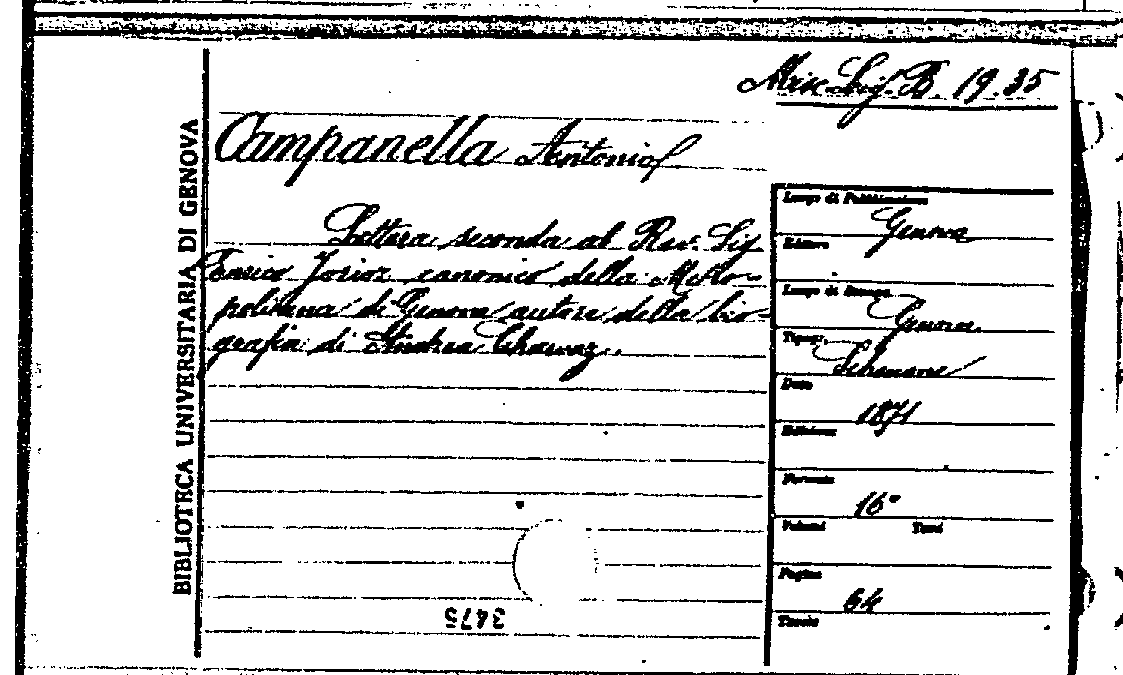 Misc. Lig. B. 19.35
Campanella Antonio
Lettera seconda al Rev. Sig
Enrico Jorioz canonico della Metro-
politana di Genova autore della bio-
grafia di Andrea Charvaz.
Luogo di Pubblicazione
Genova
Editore
Luogo di Stampa
Genova
Tipogr.
Schenone
Data
1871
Edizione
Formato
16°
Volumi Tomi
Pagine
64
Tavole
BIBLIOTECA UNIVERSITARIA DI GENOVA
3475